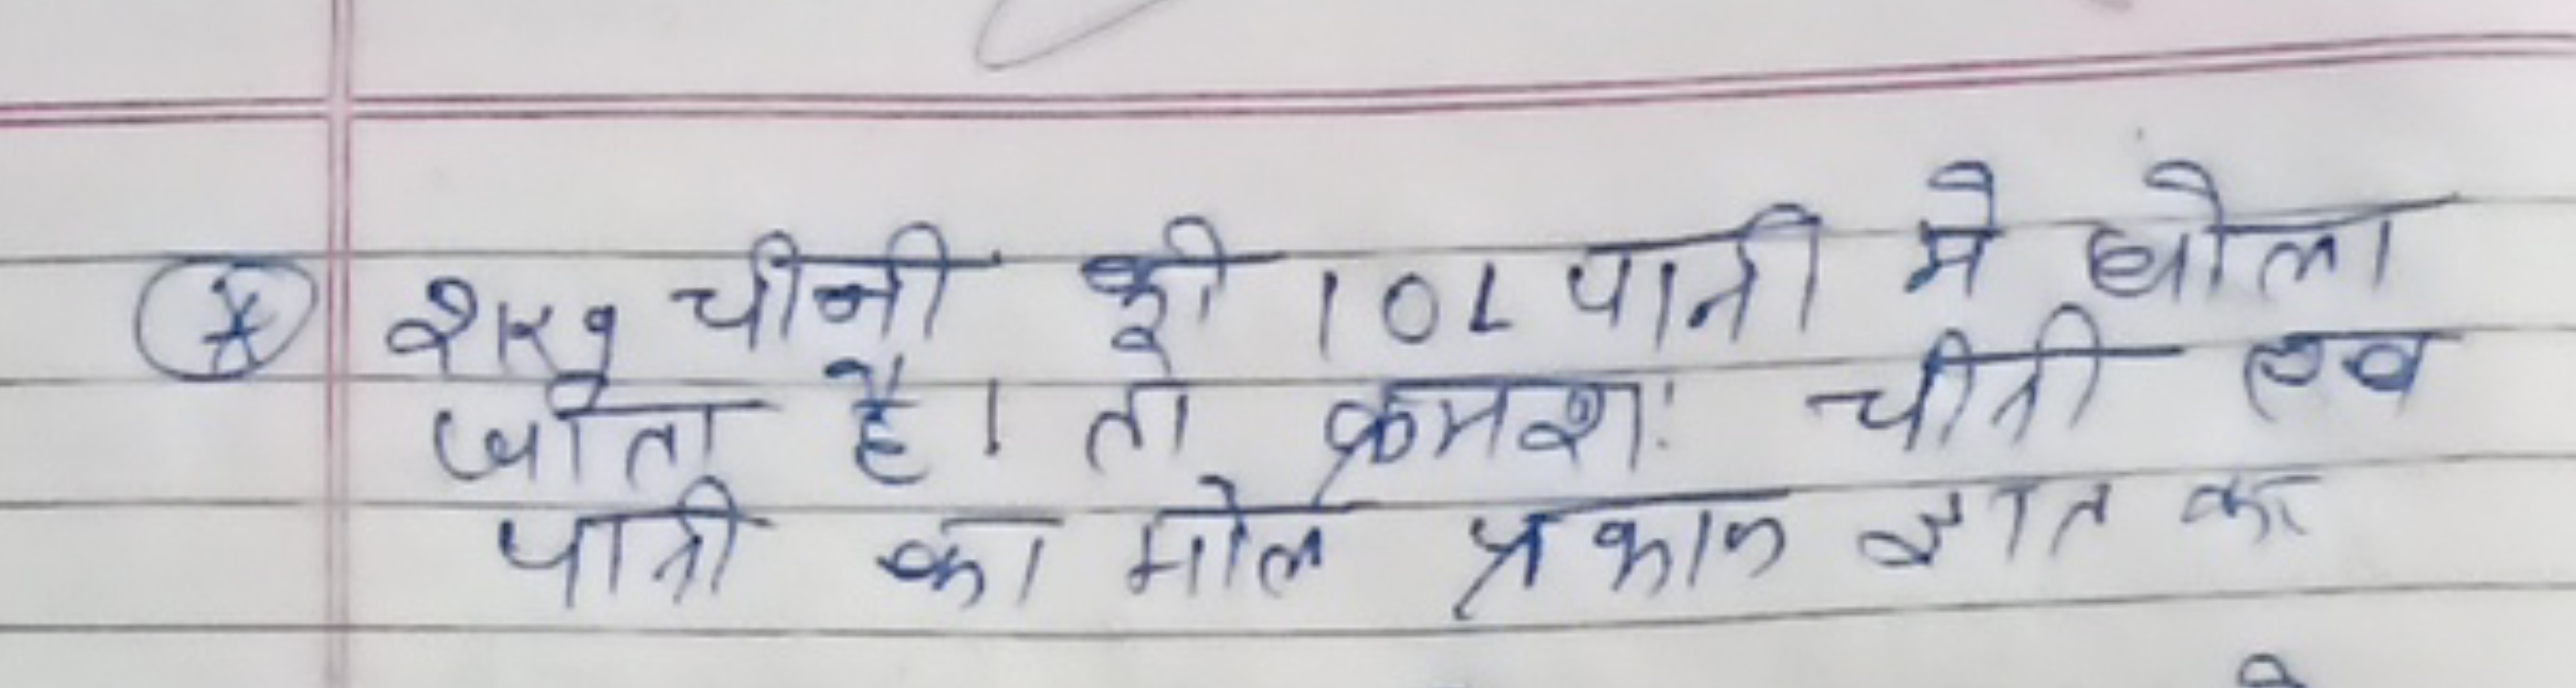 2Kg चीनी को 10L पानी मे घोला
जाता है। तो क्रमशः चीनी एव
पानी का मोल प्रभाज ज्ञात कर